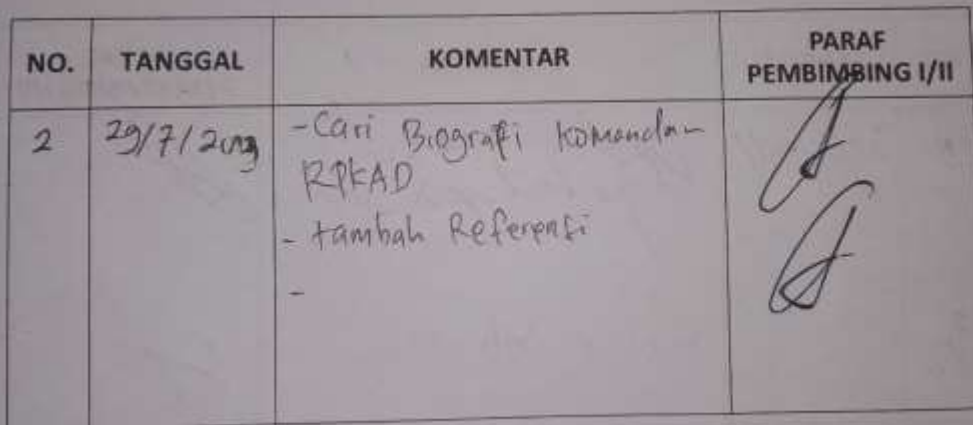 NO. TANGGAL KOMENTAR PARAF
PEMBIMBING I/II
2 29/7/ - Cari Biografi Komandan
RPKAD
- tambah Referensi
-